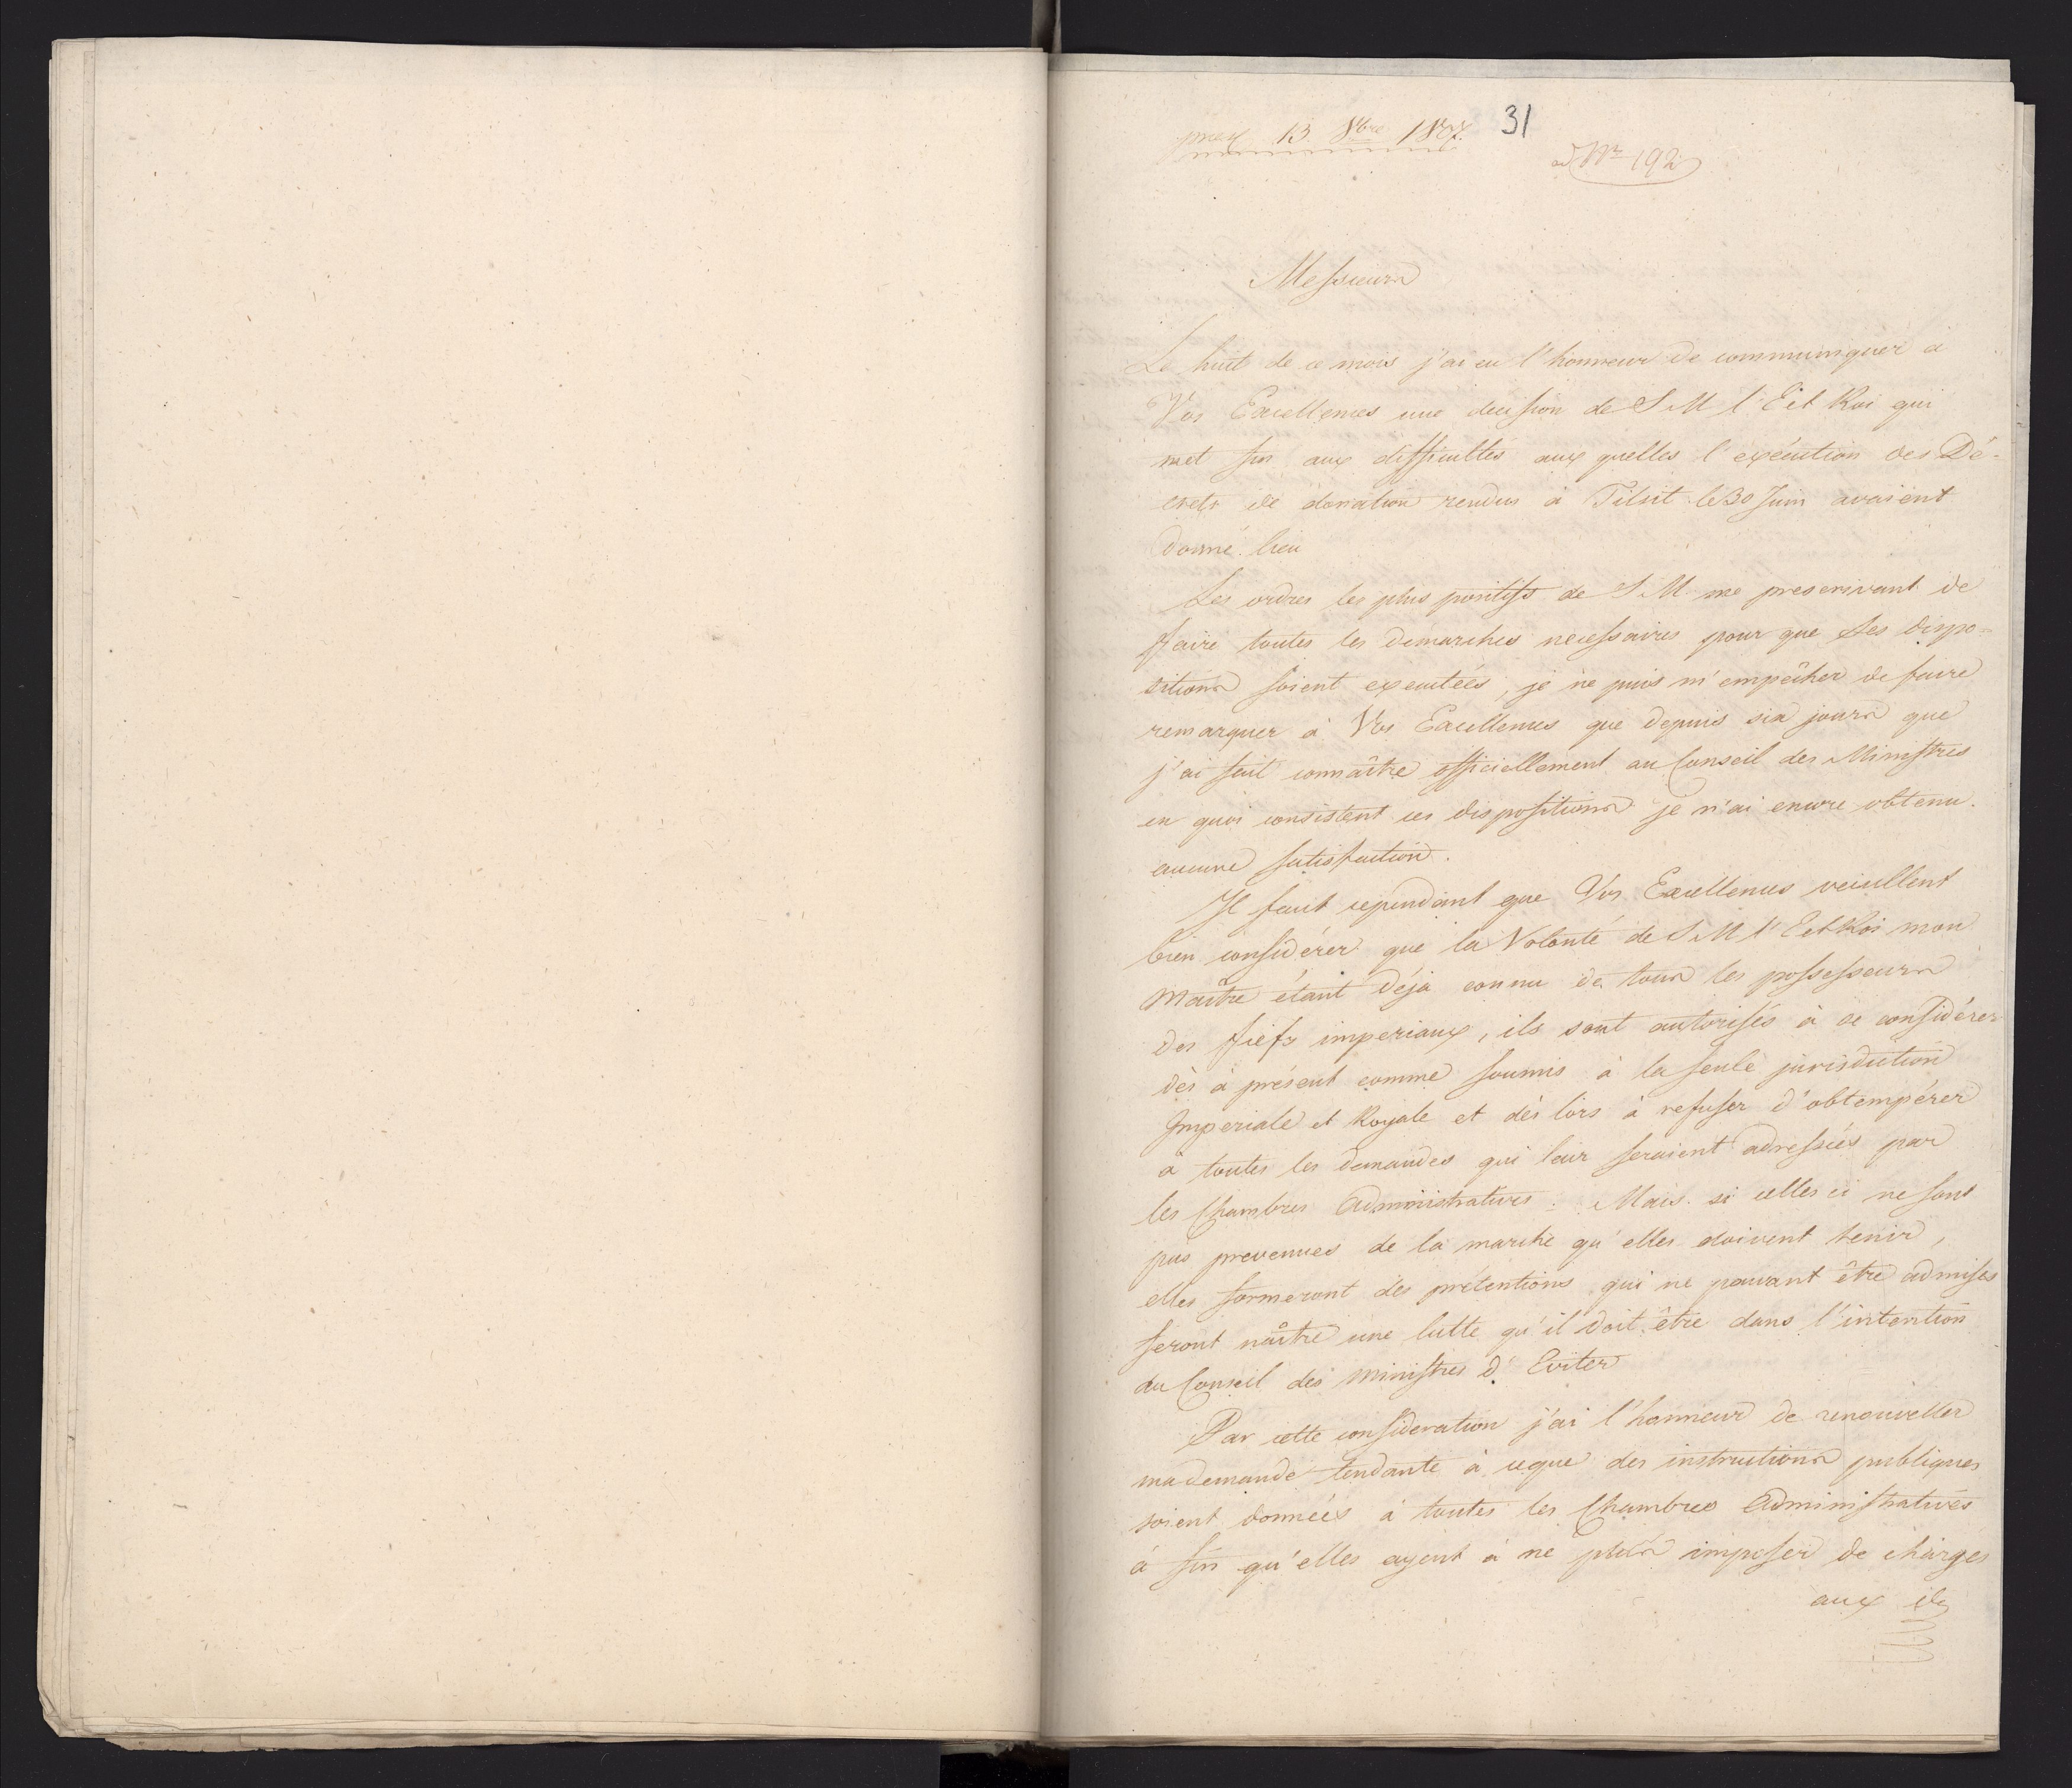 31
13 8bre 1807.
ad Nr 192
Messieurs
Le huit de ce mois j'ai eu l'honneur de communiquér à
Vos Excellences une decision de S M l'E et Roi qui
met fin aux difficultés aux quelles l'exécution des Dé-
crets de donation rendus à Tilsit le 30 Juin avaient
donné lieu
Les ordres les plus positifs de S M me prescrivant de
faire toutes les démarches necessaires pour que ses dispo=
sitions soient executées, je ne puis m'empêcher de faire
remarquer à Vos Excellences que depuis six jours que
j'ai fait connaître officiellement au Conseil des Ministres
en quoi consistent ces dispositions je n'ai encore obtenu
aucune satisfaction.
Il faut cependant que Vos Excellences veuillent
bien considérer que la Volonté de S M l'E et Roi mon
Maître étant déja connu de tous les possesseurs
des fiefs imperiaux, ils sont autorisés à se considérer
dès à présent comme soumis à la seule jurisdiction
Imperiale et Royale et dès lors à refuser d'obtempérer
à toutes les demandes qui leur seraient adressées par
les Chambres Administratives. Mais si celles ci ne sont
pas prevenues de la marche qu'elles doivent tenir,
elles formeront des prétentions qui ne pouvant être admises
feront naître une lutte qu'il doit être dans l'intention
du Conseil des Ministres d'Eviter
Par cette consideration j'ai l'honneur de renouveller
ma demande tendante à ceque des instructions publiques
soient données à toutes les Chambres Administratives
à fin qu'elles ayent à ne plus imposer de charges
aux